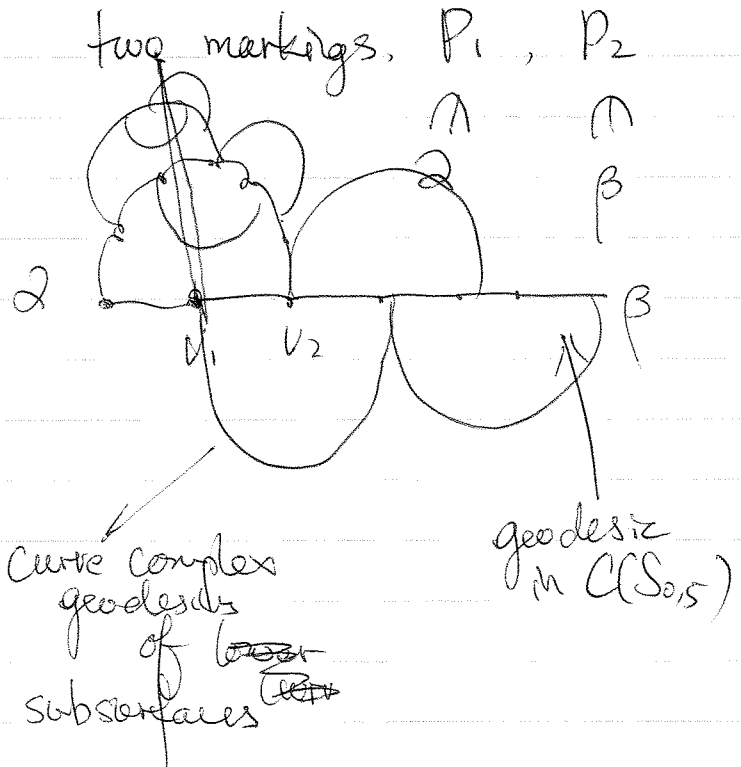 two markings. P₁ , P₂
β
2
2
β
V₁ V₂
curve complex
geodesics
of
subsurfaces
geodesic
in C(S₀,₅)